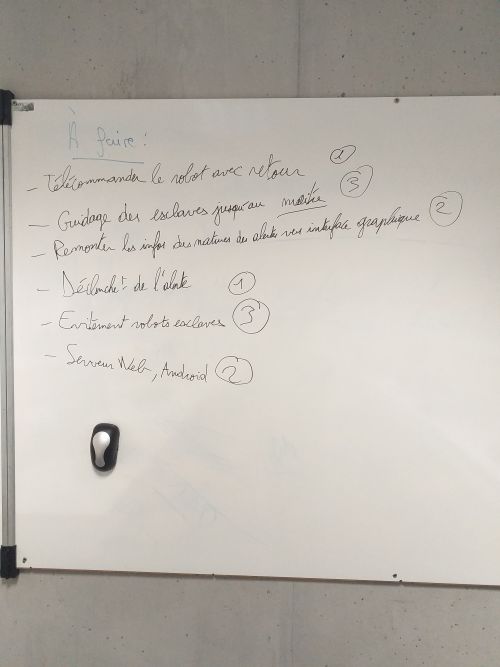 À faire :
- Télécommander le robot avec retour 1
- Guidage des esclaves jusqu'au maître 3
- Remonter les infos des natures des alertes vers interface graphique 2
- Déclencht de l'alerte 1
- Evitement robots esclaves 3'
- Serveur Web, Android 2'